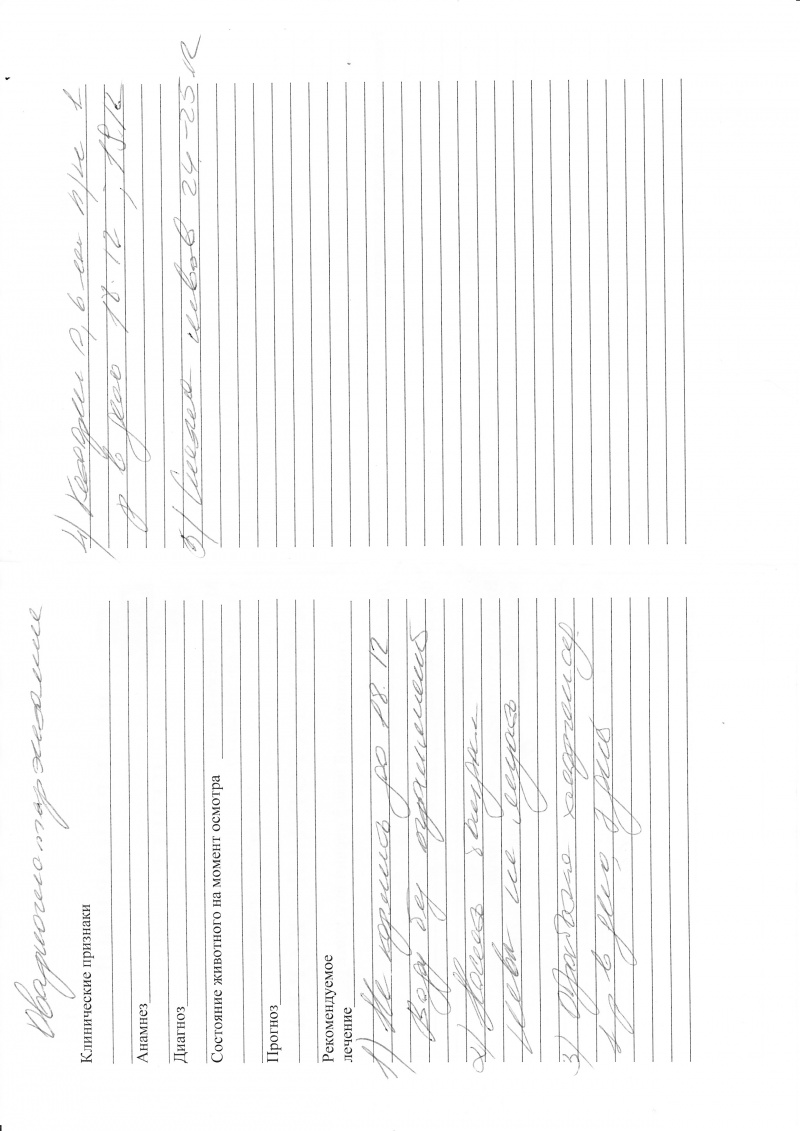 Овариогистерэктомия
Клинические признаки
Анамнез
Диагноз
Состояние животного на момент осмотра
Прогноз
Рекомендуемое
лечение
1) Не кормить до 18.12
Вода без ограничений
2)
не
3) Обработка хлоргексид.
1 р в день, 7 дней
4) 1
р в день 18.12, 19.12
5) Снятие швов 24-25.12